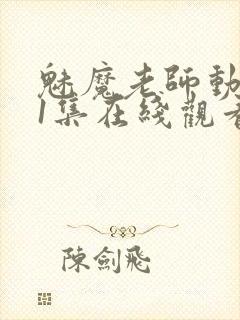 魅魔老師動
1集在綫觀看
陳劍飛